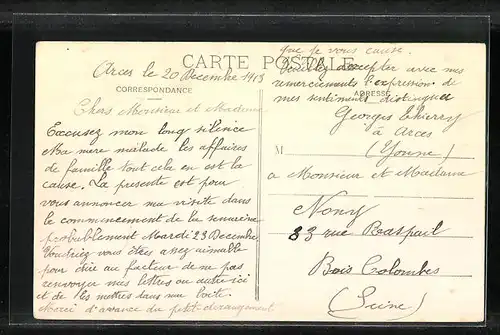 CARTE POSTALE
CORRESPONDANCE
ADRESSE
Arces le 20 Decembre 1913
Chers Monsieur et Madame
Excusez mon long silence
Ma mere malade les affaires
de famille tout cela en est la
cause. La presente est pour
vous annoncer ma visite dans
le commencement de la semaine
probablement Mardi 23 Decembre
Voudriez vous êtes assez aimable
pour dire au facteur de ne pas
renvoyer mes lettres ou autre ici
et de les mettre dans mon boite.
Merci d'avance du petit derangement
que je vous cause.
Veuillez accepter avec mes
remerciements l'expression de
mes sentiments distingués
Georges Thierry
à Arces
(Yonne)
M
a Monsieur et Madame
Nony
33 rue Raspail
Bois Colombes
(Seine)